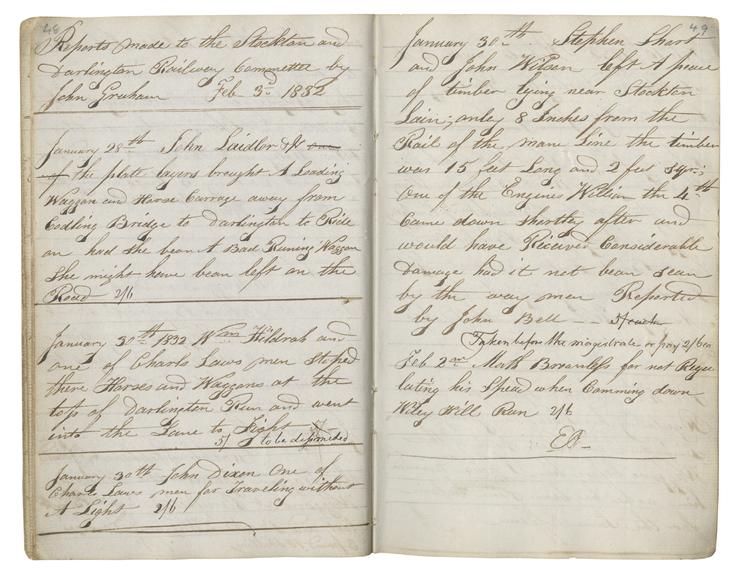 48
Reports made to the Stockton and
Darlington Railway Committe by
John Graham Feb 3rd 1832
January 28th John Laidler &
of the platt layers brought A Loading
Waggan and Horse Carrage away from
Codling Bridge to Darlington to Ride
on had she bean A Bad Runing Waggan
She might have bean left on the
Road 2/6
January 30th 1832 Wm Hildrah and
one of Charls Laws men stoped
there Horses and Waggans at the
top of Darlington Run and went
into the Lane to Fight
5/ to be dismissed
January 30th John Dixen One of
Charls Laws men for Traveling without
A Light 2/6
49
January 30th Stephen Sharp
and John Wilson left A peace
of timber lying near Stockton
Lain; onley 8 Inches from the
Rail of the mane Line the timber
was 15 feet Long and 2 feet Sqr;
One of the Engines William the 4th
Came down shortley after and
would have Received Considerable
Damage had it not bean sean
by the way men Reported
by John Bell 5/ each
Taken before the magistrate or pay 2/6
Feb 2nd Mark for not Regu
lating his Spead when Comming down
Wiley Hill Run 2/6